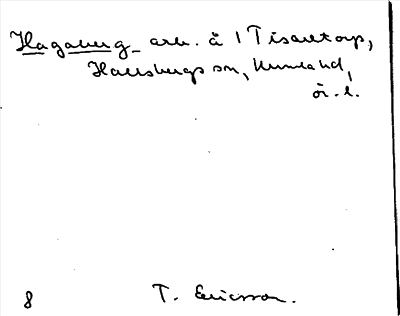 Hagaberg arb. å 1 Tisartorp,
Hallsbergs sn, Kumla hd,
ör. l.
8 T. Ericsson.